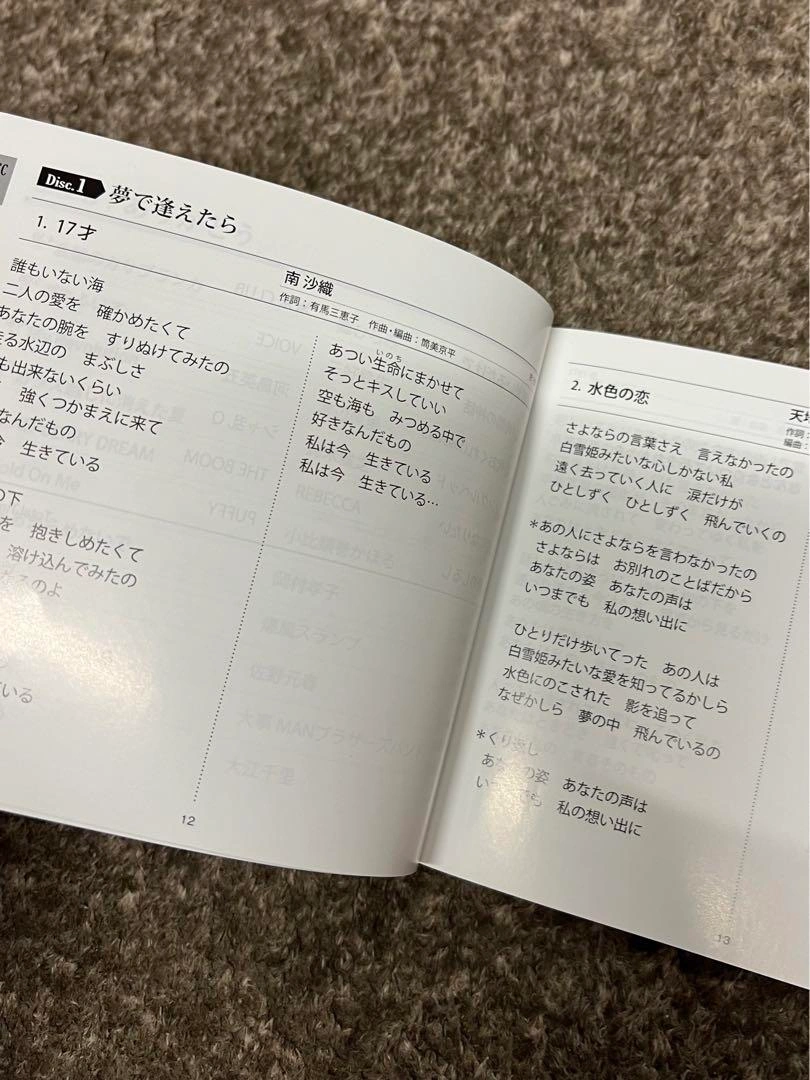 Disc.1 夢で逢えたら
1. 17才
南 沙織
作詞：有馬三恵子 作曲・編曲：筒美京平
誰もいない海
二人の愛を 確かめたくて
あなたの腕を すりぬけてみたの
る水辺の まぶしさ
も出来ないくらい
強くつかまえに来て
なんだもの
生きている
の下
を 抱きしめたくて
溶け込んでみたの
るのよ
いる
あつい生命にまかせて
いのち
そっとキスしていい
空も海も みつめる中で
好きなんだもの
私は今 生きている
私は今 生きている…
12
2. 水色の恋
天
作詞：
編曲：
さよならの言葉さえ 言えなかったの
白雪姫みたいな心しかない私
遠く去っていく人に 涙だけが
ひとしずく ひとしずく 飛んでいくの
＊あの人にさよならを言わなかったの
さよならは お別れのことばだから
あなたの姿 あなたの声は
いつまでも 私の想い出に
ひとりだけ歩いてった あの人は
白雪姫みたいな愛を知ってるかしら
水色にのこされた 影を追って
なぜかしら 夢の中 飛んでいるの
＊くり返し
あなたの姿 あなたの声は
いつまでも 私の想い出に
13